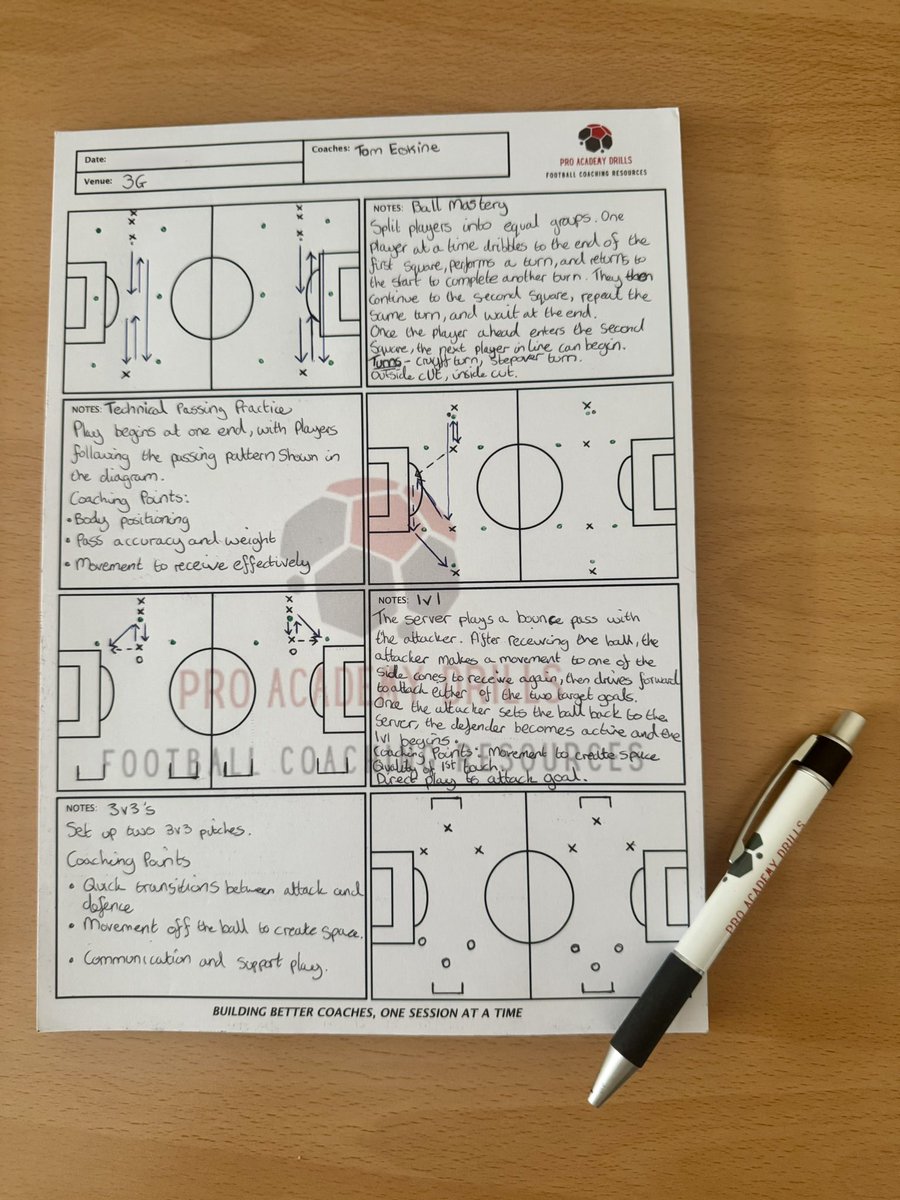 Date:
Venue: 3G
Coaches: Tom Erskine
PRO ACADEMY DRILLS
FOOTBALL COACHING RESOURCES
NOTES: Ball Mastery
Split players into equal groups. One
player at a time dribbles to the end of the
first square, performs a turn, and returns to
the start to complete another turn. They then
continue to the second square, repeat the
same turn, and wait at the end.
Once the player ahead enters the second
square, the next player in line can begin.
Turns - cruyff turn, stepover turn.
outside cut, inside cut.
NOTES: Technical Passing Practice
Play begins at one end, with players
following the passing pattern shown in
the diagram.
Coaching Points:
• Body positioning
• Pass accuracy and weight
• Movement to receive effectively
NOTES: 1v1
The server plays a bounce pass with
the attacker. After receiving the ball, the
attacker makes a movement to one of the
side cones to receive again, then drives forward
to attack either of the two target goals.
Once the attacker sets the ball back to the
server, the defender becomes active and the
1v1 begins.
Coaching Points: Movement to create space
Quality of 1st touch.
Direct play to attack goal.
PRO ACADEMY DRILLS
FOOTBALL COACHING RESOURCES
NOTES: 3v3's
Set up two 3v3 pitches.
Coaching Points
• Quick transitions between attack and
defence
• Movement off the ball to create space.
• Communication and support play.
BUILDING BETTER COACHES, ONE SESSION AT A TIME
PRO ACADEMY DRILLS